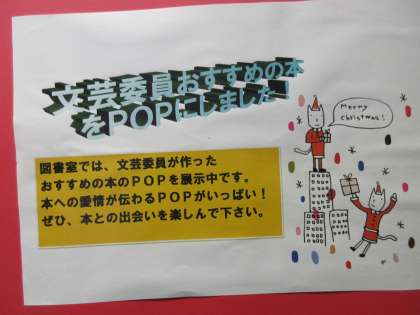 文芸委員おすすめの本
をPOPにしました!
図書室では、文芸委員が作った
おすすめの本のPOPを展示中です。
本への愛情が伝わるPOPがいっぱい!
ぜひ、本との出会いを楽しんで下さい。
Merry
Christmas!